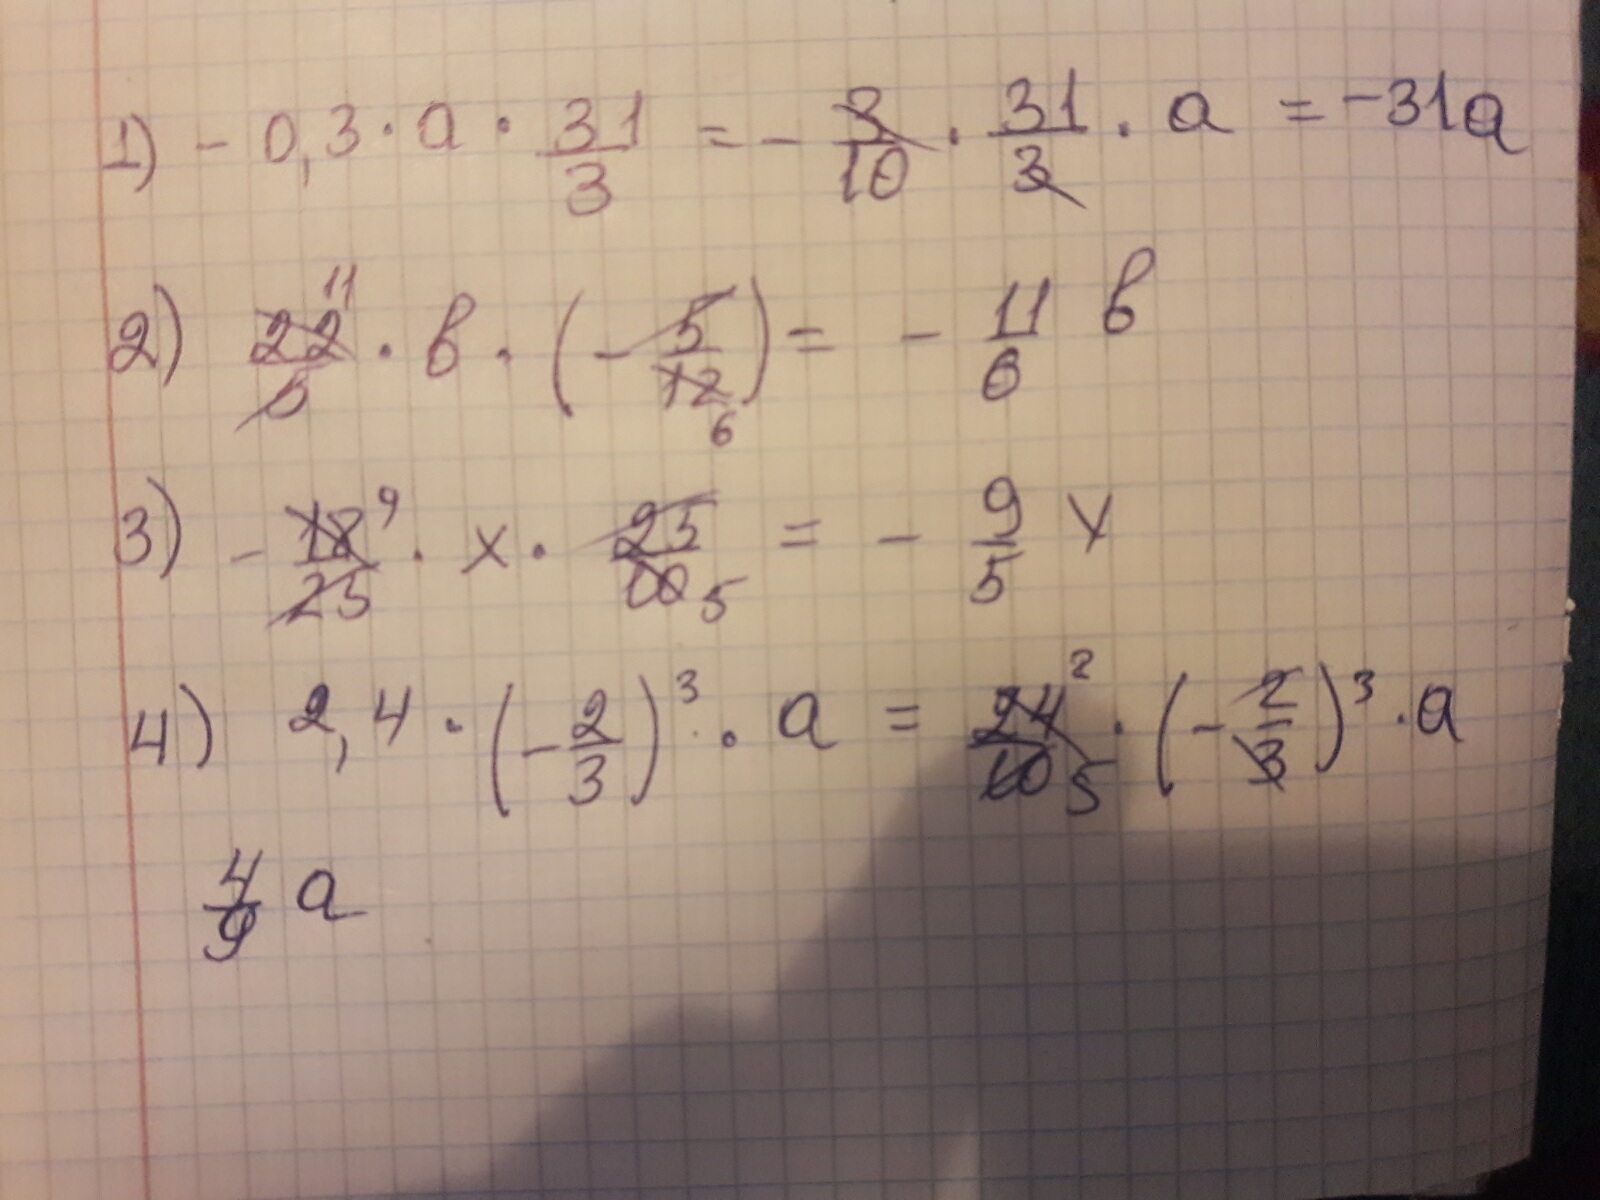 1) - 0,3 · a · 31/3 = - 3/10 · 31/3 · a = -31a
2) 22/5 11 · в · (- 5/12 6) = - 11/6 в
3) - 18/25 9 · x · 25/10 5 = - 9/5 x
4) 2,4 · (- 2/3)³ · a = 24/10 2 5 · (- 2/3)³ · a
4/9 a